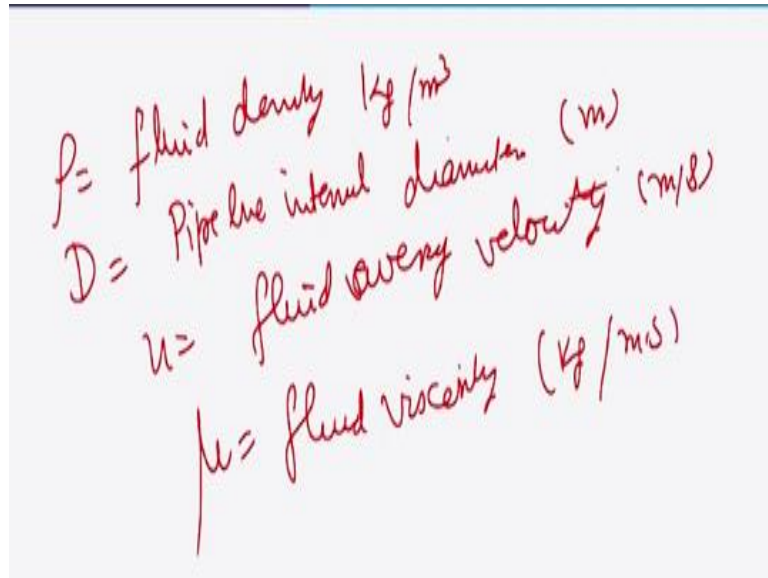 ρ = fluid density kg/m³
D = Pipe line internal diameter (m)
u = fluid average velocity (m/s)
μ = fluid viscosity (kg/m.s)